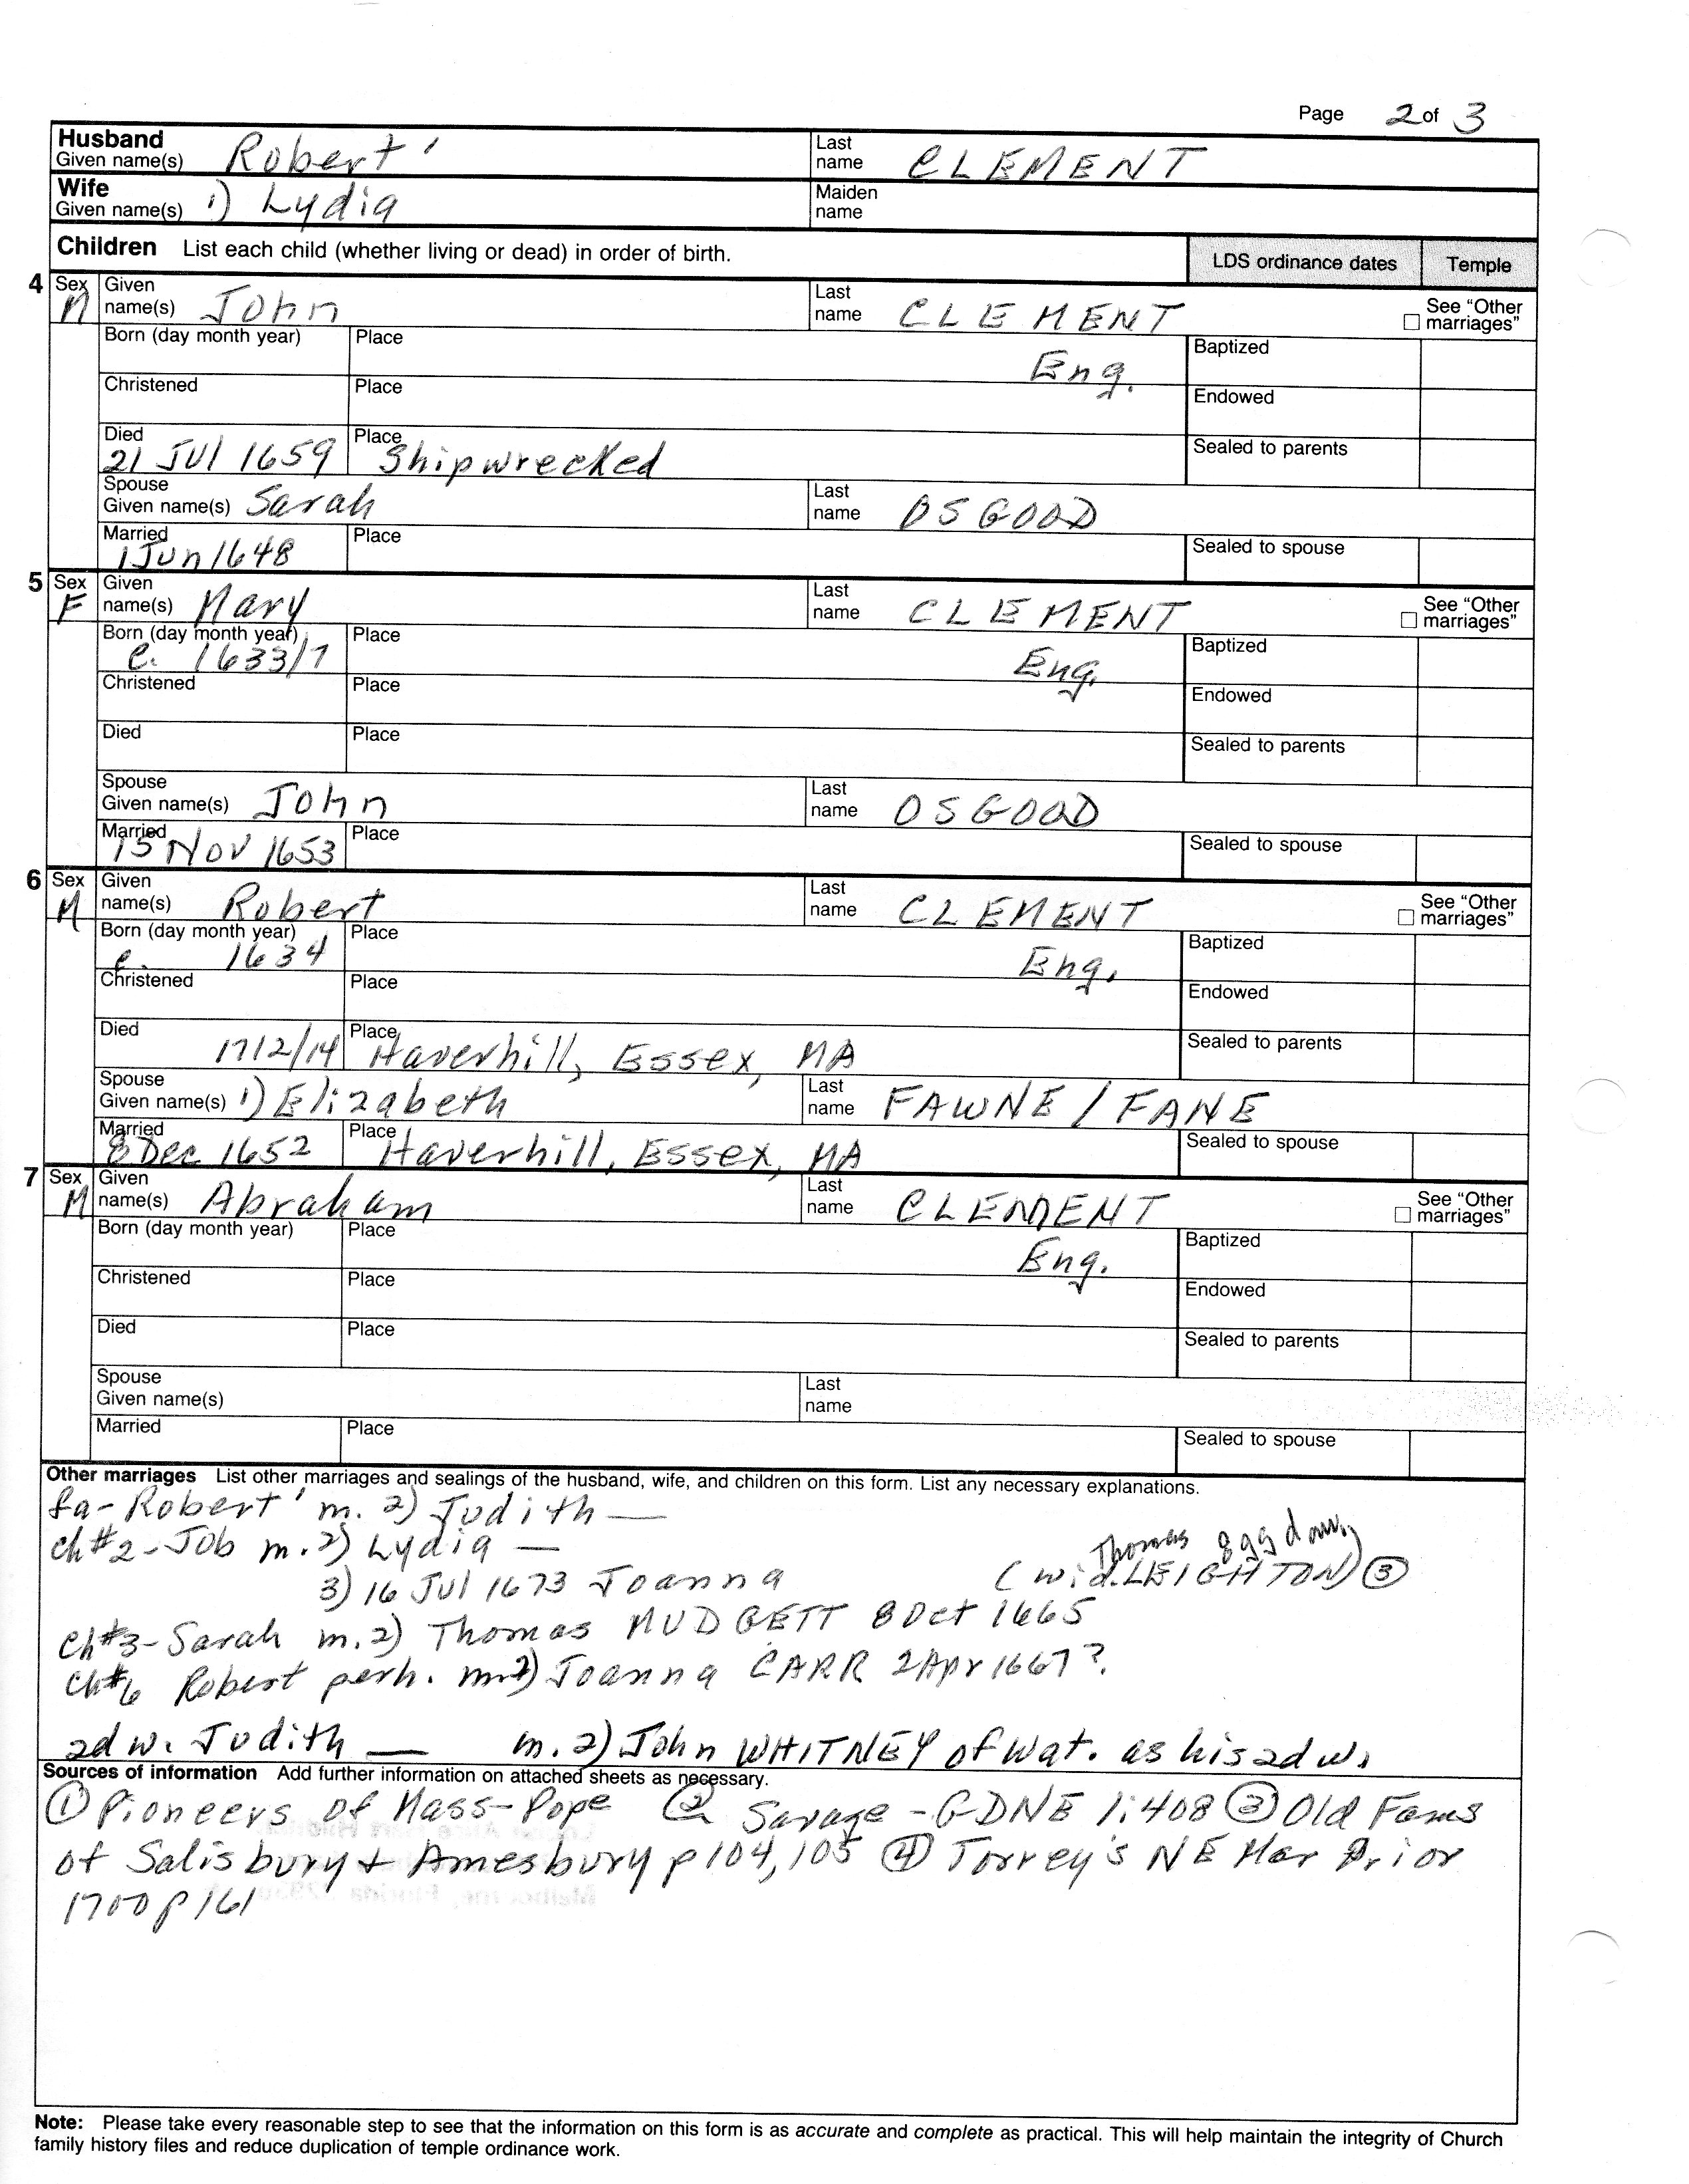 Page 2 of 3
Husband Given name(s) Robert' Last name CLEMENT
Wife Given name(s) 1) Lydia Maiden name
Children List each child (whether living or dead) in order of birth. LDS ordinance dates Temple
4 Sex M Given name(s) John Last name CLEMENT See "Other marriages"
Born (day month year) Place Eng. Baptized
Christened Place Endowed
Died 21 Jul 1659 Place Shipwrecked Sealed to parents
Spouse Given name(s) Sarah Last name OSGOOD
Married 1 Jun 1648 Place Sealed to spouse
5 Sex F Given name(s) Mary Last name CLEMENT See "Other marriages"
Born (day month year) c. 1633/7 Place Eng. Baptized
Christened Place Endowed
Died Place Sealed to parents
Spouse Given name(s) John Last name OSGOOD
Married 15 Nov 1653 Place Sealed to spouse
6 Sex M Given name(s) Robert Last name CLEMENT See "Other marriages"
Born (day month year) c. 1634 Place Eng. Baptized
Christened Place Endowed
Died 1712/14 Place Haverhill, Essex, MA Sealed to parents
Spouse Given name(s) 1) Elizabeth Last name FAWNE / FANE
Married 8 Dec 1652 Place Haverhill, Essex, MA Sealed to spouse
7 Sex M Given name(s) Abraham Last name CLEMENT See "Other marriages"
Born (day month year) Place Eng. Baptized
Christened Place Endowed
Died Place Sealed to parents
Spouse Given name(s) Last name
Married Place Sealed to spouse
Other marriages List other marriages and sealings of the husband, wife, and children on this form. List any necessary explanations.
fa- Robert' m. 2) Judith —
ch#2- Job m. 2) Lydia —
Thomas
3) 16 Jul 1673 Joanna (wid. LEIGHTON) ③
ch#3- Sarah m. 2) Thomas MUDGETT 8 Oct 1665
ch#6 Robert perh. m 2) Joanna CARR 2 Apr 1667?
2d w. Judith — m. 2) John WHITNEY of Wat. as his 2d w.
Sources of information Add further information on attached sheets as necessary.
① Pioneers of Mass-Pope ② Savage - GDNE 1:408 ③ Old Fams
of Salisbury + Amesbury p 104, 105 ④ Torrey's NE Mar Prior
1700 p 161
Note: Please take every reasonable step to see that the information on this form is as accurate and complete as practical. This will help maintain the integrity of Church
family history files and reduce duplication of temple ordinance work.